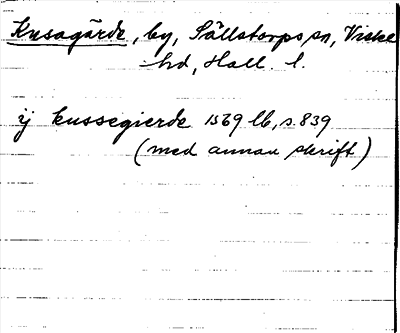 Kusagärde, by, Sällstorps sn, Viske
hd, Hall. l.
ij kussegierde 1569 lb, s. 839
(med annan skrift)